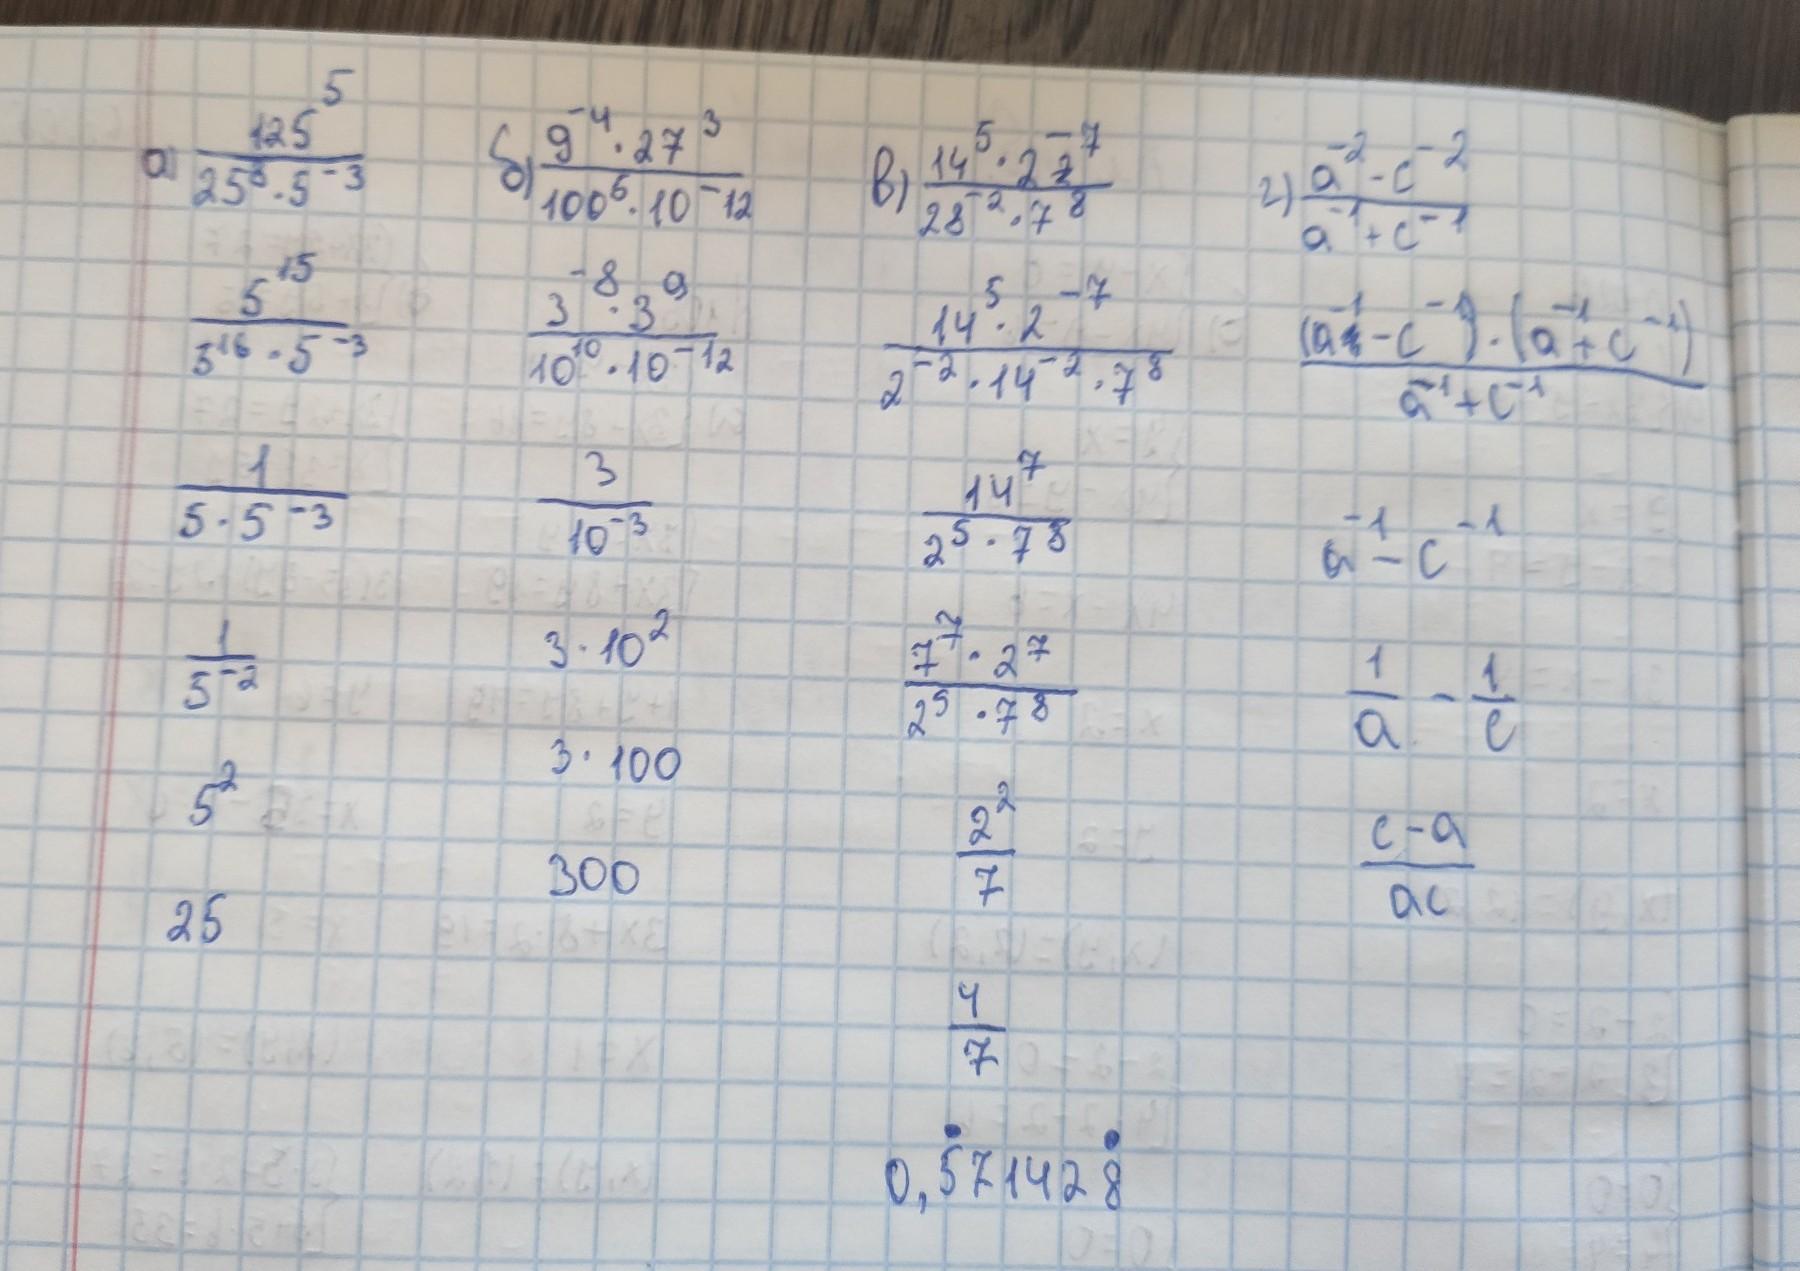 а) 125^5 / (25^8 · 5^-3)
5^15 / (5^16 · 5^-3)
1 / (5 · 5^-3)
1 / 5^-2
5^2
25
б) (9^-4 · 27^3) / (100^5 · 10^-12)
(3^-8 · 3^9) / (10^10 · 10^-12)
3 / 10^-3
3 · 10^2
3 · 100
300
в) (14^5 · 2^-7) / (28^-2 · 7^8)
(14^5 · 2^-7) / (2^-2 · 14^-2 · 7^8)
14^7 / (2^5 · 7^8)
(7^7 · 2^7) / (2^5 · 7^8)
2^2 / 7
4 / 7
0,5̇71428̇
г) (a^-2 - c^-2) / (a^-1 + c^-1)
((a^-1 - c^-1) · (a^-1 + c^-1)) / (a^-1 + c^-1)
a^-1 - c^-1
1/a - 1/c
(c - a) / ac